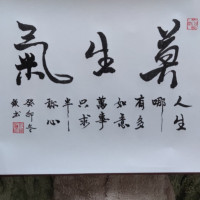 莫生氣
人生
哪
有多
如意
萬事
只求
半
称心
癸卯
书